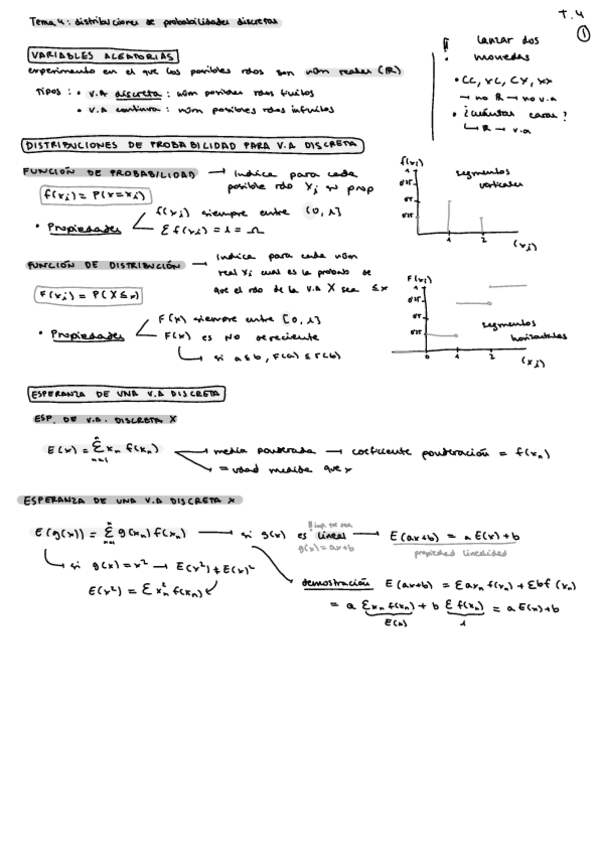 Tema 4: distribuciones de probabilidades discretas
T.4
1
VARIABLES ALEATORIAS
experimento en el que los posibles rdos son núm reales (ℝ)
Tipos: • V.A discreta: núm posibles rdos finitos
• V.A continua: núm posibles rdos infinitos
lanzar dos
monedas
• CC, XC, CX, XX
→ no ℝ → no v.a
• ¿cuántas caras?
↳ ℝ → v.a
DISTRIBUCIONES DE PROBABILIDAD PARA V.A DISCRETA
FUNCIÓN DE PROBABILIDAD → Indica para cada
posible rdo Xi su prop
f(xi) = P(X=xi)
• Propiedades
f(xi) siempre entre [0,1]
Σ f(xi) = 1 = Ω
f(xi)
segmentos
verticales
1
2
(xi)
FUNCIÓN DE DISTRIBUCIÓN → Indica para cada núm
real xi cual es la probab de
que el rdo de la V.A X sea ≤x
F(xi) = P(X≤x)
• Propiedades
F(x) siempre entre [0,1]
F(x) es NO decreciente
↳ si a≤b, F(a) ≤ F(b)
F(xi)
segmentos
horizontales
0
1
2
(xi)
ESPERANZA DE UNA V.A DISCRETA
ESP. DE V.A. DISCRETA X
E(x) = Σ xn f(xn) → media ponderada → coeficiente ponderación = f(xn)
n
n=1
→ = udad medida que x
ESPERANZA DE UNA V.A DISCRETA X
E(g(x)) = Σ g(xn) f(xn) → si g(x) es lineal → E(ax+b) = a E(x)+b
n
n=1
g(x) = ax+b
propiedad linealidad
↳ si g(x) = x² → E(x²) ≠ E(x)²
E(x²) = Σ xn² f(xn)
demostración E(ax+b) = Σ axn f(xn) + Σ b f(xn)
= a Σ xn f(xn) + b Σ f(xn) = a E(x)+b
E(x)
1